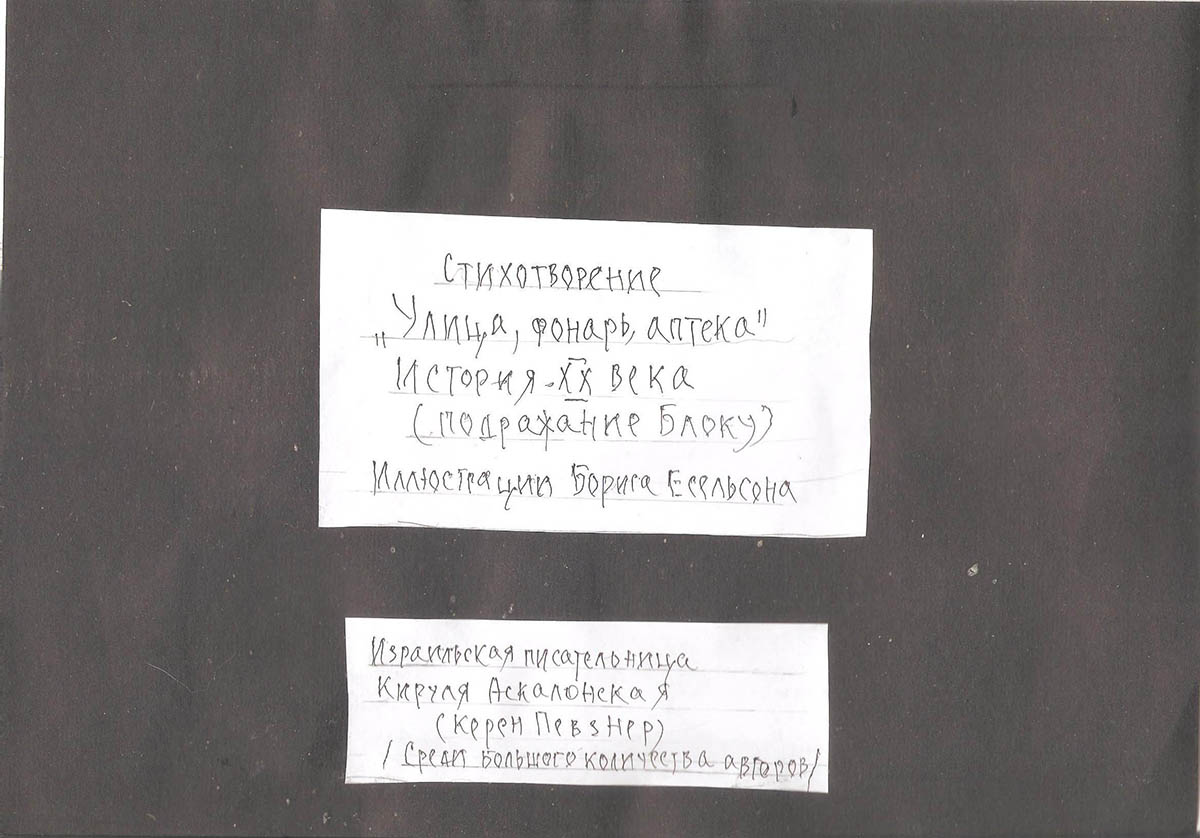 Стихотворение
„Улица, фонарь, аптека"
История XX века
(подражание Блоку)
Иллюстрации Бориса Есельсона
Израильская писательница
Кируля Аскалонская
(Керен Певзнер)
/ Среди большого количества авторов/